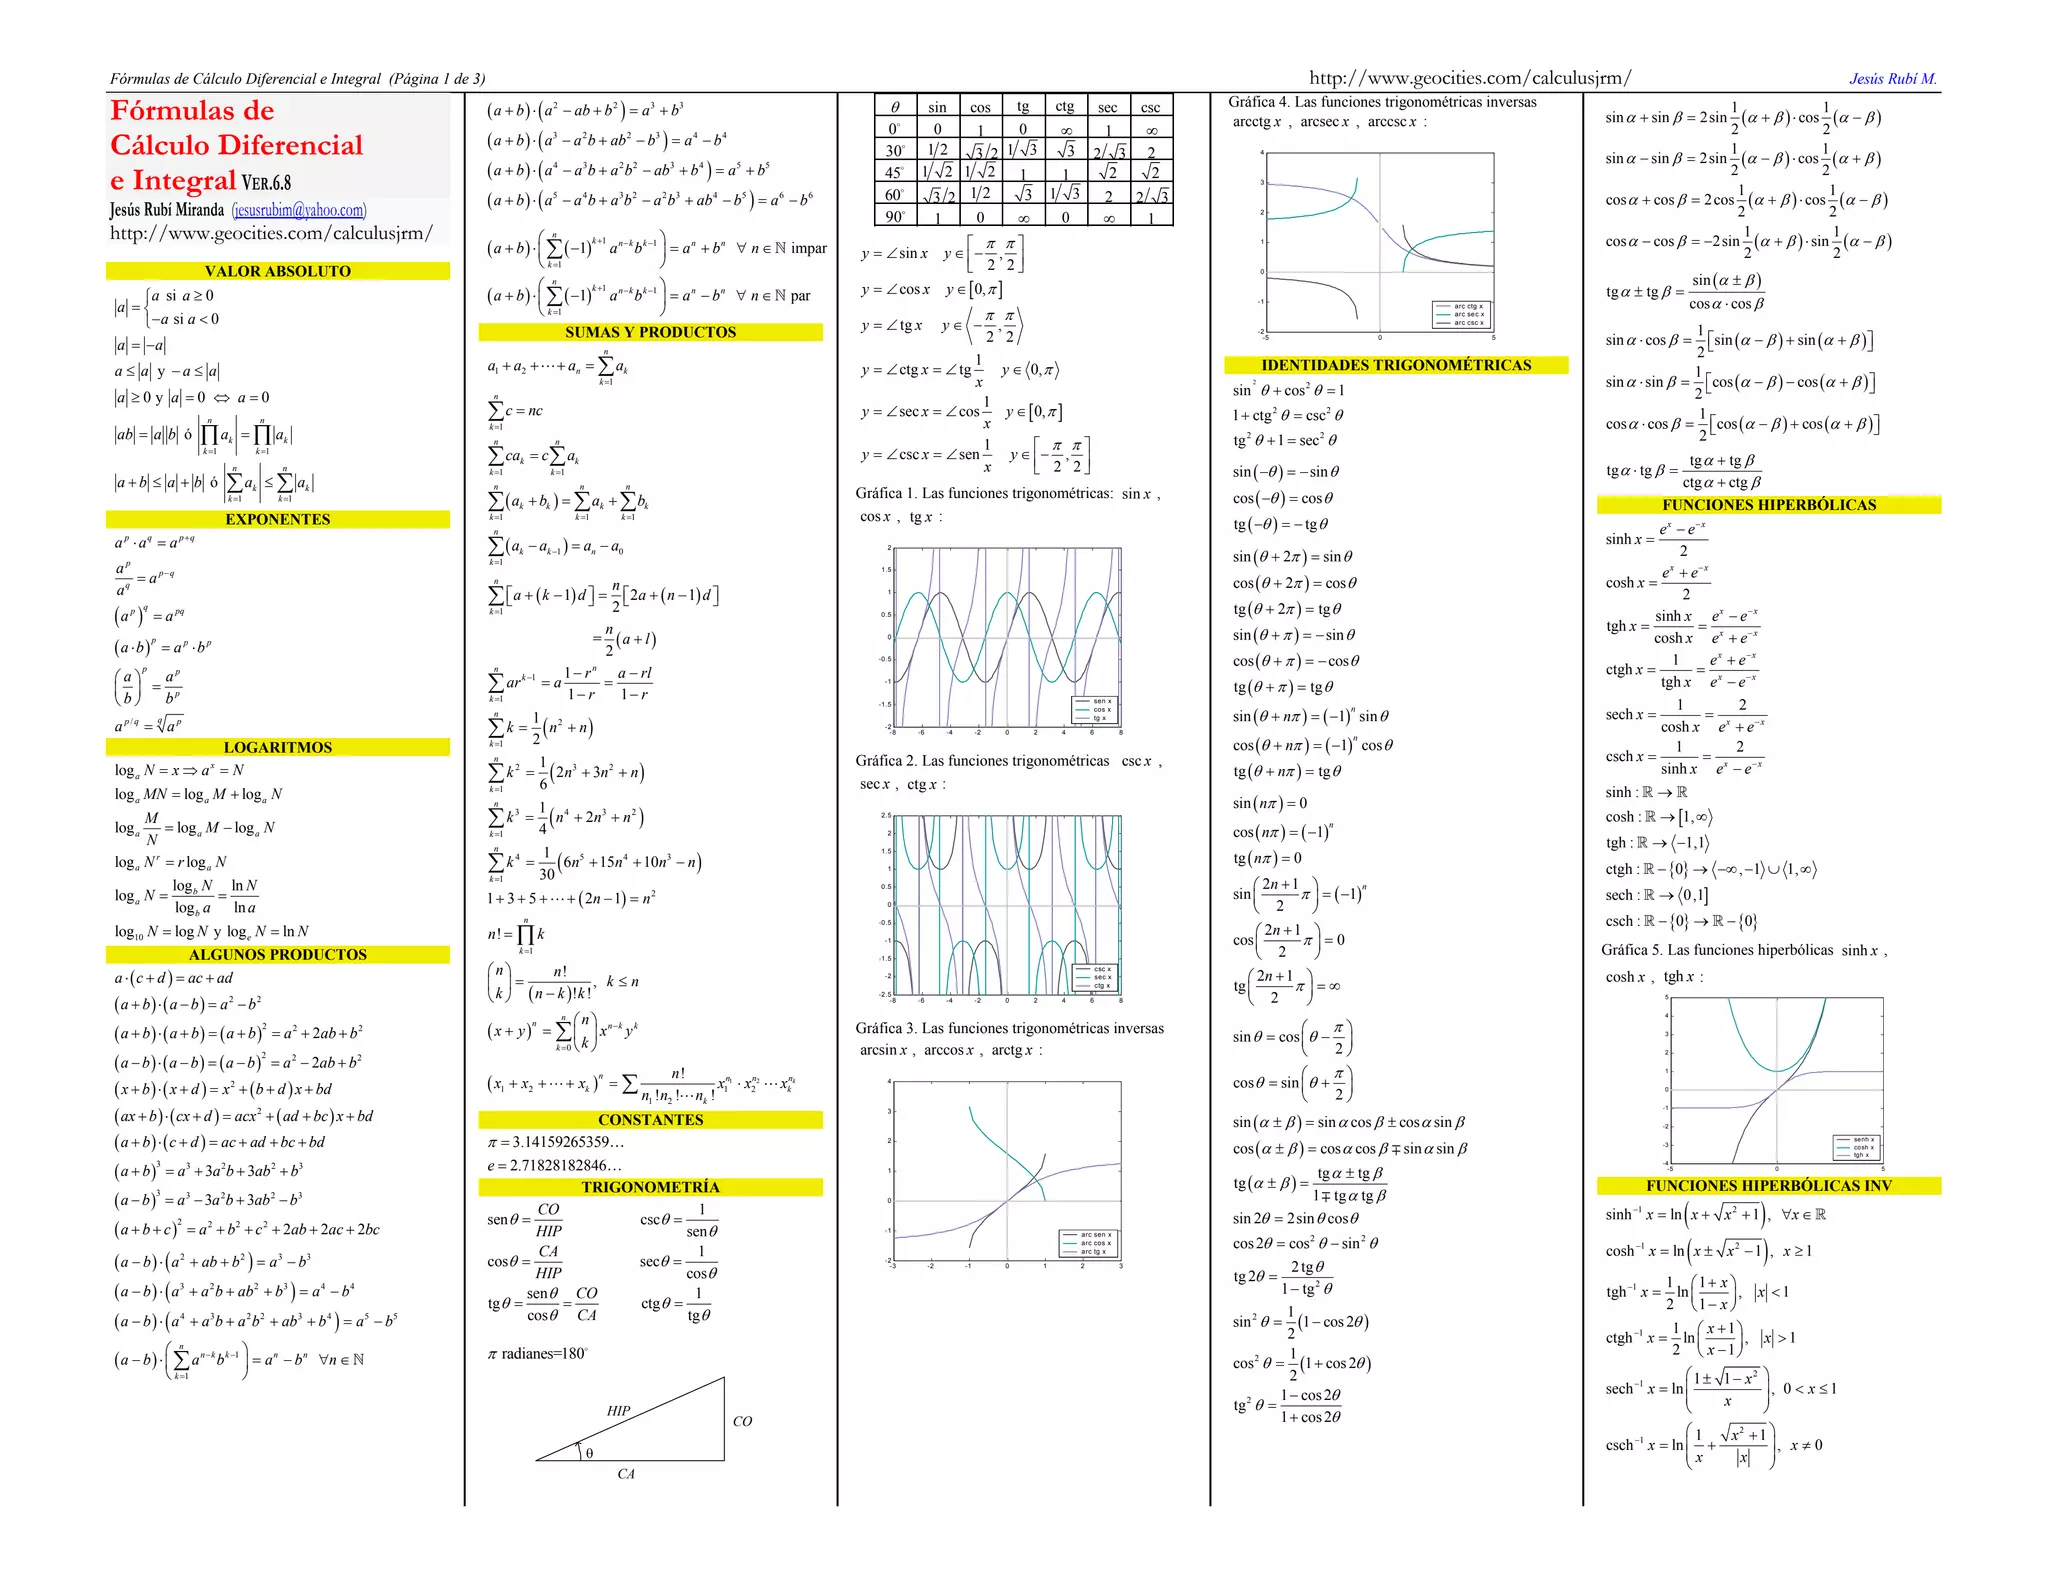 Fórmulas de Cálculo Diferencial e Integral (Página 1 de 3) http://www.geocities.com/calculusjrm/ Jesús Rubí M.
Fórmulas de
Cálculo Diferencial
e Integral VER.6.8
Jesús Rubí Miranda (jesusrubim@yahoo.com)
http://www.geocities.com/calculusjrm/
VALOR ABSOLUTO
|a| = { a si a ≥ 0
−a si a < 0
|a| = |−a|
a ≤ |a| y −a ≤ |a|
|a| ≥ 0 y |a| = 0 ⇔ a = 0
|ab| = |a||b| ó |∏_{k=1}^{n} a_k| = ∏_{k=1}^{n} |a_k|
|a+b| ≤ |a|+|b| ó |∑_{k=1}^{n} a_k| ≤ ∑_{k=1}^{n} |a_k|
EXPONENTES
a^p · a^q = a^{p+q}
a^p / a^q = a^{p−q}
(a^p)^q = a^{pq}
(a·b)^p = a^p · b^p
(a/b)^p = a^p / b^p
a^{p/q} = ^q√a^p
LOGARITMOS
log_a N = x ⇒ a^x = N
log_a MN = log_a M + log_a N
log_a M/N = log_a M − log_a N
log_a N^r = r log_a N
log_a N = log_b N / log_b a = ln N / ln a
log_10 N = log N y log_e N = ln N
ALGUNOS PRODUCTOS
a·(c+d) = ac + ad
(a+b)·(a−b) = a² − b²
(a+b)·(a+b) = (a+b)² = a² + 2ab + b²
(a−b)·(a−b) = (a−b)² = a² − 2ab + b²
(x+b)·(x+d) = x² + (b+d)x + bd
(ax+b)·(cx+d) = acx² + (ad+bc)x + bd
(a+b)·(c+d) = ac + ad + bc + bd
(a+b)³ = a³ + 3a²b + 3ab² + b³
(a−b)³ = a³ − 3a²b + 3ab² − b³
(a+b+c)² = a² + b² + c² + 2ab + 2ac + 2bc
(a−b)·(a² + ab + b²) = a³ − b³
(a−b)·(a³ + a²b + ab² + b³) = a⁴ − b⁴
(a−b)·(a⁴ + a³b + a²b² + ab³ + b⁴) = a⁵ − b⁵
(a−b)·(∑_{k=1}^{n} a^{n−k} b^{k−1}) = a^n − b^n ∀n ∈ ℕ
(a+b)·(a² − ab + b²) = a³ + b³
(a+b)·(a³ − a²b + ab² − b³) = a⁴ − b⁴
(a+b)·(a⁴ − a³b + a²b² − ab³ + b⁴) = a⁵ + b⁵
(a+b)·(a⁵ − a⁴b + a³b² − a²b³ + ab⁴ − b⁵) = a⁶ − b⁶
(a+b)·(∑_{k=1}^{n} (−1)^{k+1} a^{n−k} b^{k−1}) = a^n + b^n ∀ n ∈ ℕ impar
(a+b)·(∑_{k=1}^{n} (−1)^{k+1} a^{n−k} b^{k−1}) = a^n − b^n ∀ n ∈ ℕ par
SUMAS Y PRODUCTOS
a₁ + a₂ + ⋯ + a_n = ∑_{k=1}^{n} a_k
∑_{k=1}^{n} c = nc
∑_{k=1}^{n} ca_k = c ∑_{k=1}^{n} a_k
∑_{k=1}^{n} (a_k + b_k) = ∑_{k=1}^{n} a_k + ∑_{k=1}^{n} b_k
∑_{k=1}^{n} (a_k − a_{k−1}) = a_n − a₀
∑_{k=1}^{n} [a + (k−1)d] = n/2 [2a + (n−1)d]
= n/2 (a + l)
∑_{k=1}^{n} ar^{k−1} = a (1−r^n)/(1−r) = (a−rl)/(1−r)
∑_{k=1}^{n} k = 1/2 (n² + n)
∑_{k=1}^{n} k² = 1/6 (2n³ + 3n² + n)
∑_{k=1}^{n} k³ = 1/4 (n⁴ + 2n³ + n²)
∑_{k=1}^{n} k⁴ = 1/30 (6n⁵ + 15n⁴ + 10n³ − n)
1 + 3 + 5 + ⋯ + (2n−1) = n²
n! = ∏_{k=1}^{n} k
(n k) = n! / (n−k)!k! , k ≤ n
(x+y)^n = ∑_{k=0}^{n} (n k) x^{n−k} y^k
(x₁ + x₂ + ⋯ + x_k)^n = ∑ n! / n₁!n₂!⋯n_k! x₁^{n₁} · x₂^{n₂} ⋯ x_k^{n_k}
CONSTANTES
π = 3.14159265359…
e = 2.71828182846…
TRIGONOMETRÍA
sen θ = CO/HIP csc θ = 1/sen θ
cos θ = CA/HIP sec θ = 1/cos θ
tg θ = sen θ/cos θ = CO/CA ctg θ = 1/tg θ
π radianes=180°
HIP
CO
θ
CA
θ sin cos tg ctg sec csc
0° 0 1 0 ∞ 1 ∞
30° 1/2 √3/2 1/√3 √3 2/√3 2
45° 1/√2 1/√2 1 1 √2 √2
60° √3/2 1/2 √3 1/√3 2 2/√3
90° 1 0 ∞ 0 ∞ 1
y = ∠sin x y ∈ [−π/2, π/2]
y = ∠cos x y ∈ [0, π]
y = ∠tg x y ∈ ⟨−π/2, π/2⟩
y = ∠ctg x = ∠tg 1/x y ∈ ⟨0, π⟩
y = ∠sec x = ∠cos 1/x y ∈ [0, π]
y = ∠csc x = ∠sen 1/x y ∈ [−π/2, π/2]
Gráfica 1. Las funciones trigonométricas: sin x ,
cos x , tg x :
2
1.5
1
0.5
0
-0.5
-1
-1.5
-2
sen x
cos x
tg x
-8 -6 -4 -2 0 2 4 6 8
Gráfica 2. Las funciones trigonométricas csc x ,
sec x , ctg x :
2.5
2
1.5
1
0.5
0
-0.5
-1
-1.5
-2
-2.5
csc x
sec x
ctg x
-8 -6 -4 -2 0 2 4 6 8
Gráfica 3. Las funciones trigonométricas inversas
arcsin x , arccos x , arctg x :
4
3
2
1
0
-1
-2
arc sen x
arc cos x
arc tg x
-3 -2 -1 0 1 2 3
Gráfica 4. Las funciones trigonométricas inversas
arcctg x , arcsec x , arccsc x :
4
3
2
1
0
-1
-2
arc ctg x
arc sec x
arc csc x
-5 0 5
IDENTIDADES TRIGONOMÉTRICAS
sin² θ + cos² θ = 1
1 + ctg² θ = csc² θ
tg² θ + 1 = sec² θ
sin(−θ) = −sin θ
cos(−θ) = cos θ
tg(−θ) = −tg θ
sin(θ + 2π) = sin θ
cos(θ + 2π) = cos θ
tg(θ + 2π) = tg θ
sin(θ + π) = −sin θ
cos(θ + π) = −cos θ
tg(θ + π) = tg θ
sin(θ + nπ) = (−1)^n sin θ
cos(θ + nπ) = (−1)^n cos θ
tg(θ + nπ) = tg θ
sin(nπ) = 0
cos(nπ) = (−1)^n
tg(nπ) = 0
sin((2n+1)/2 π) = (−1)^n
cos((2n+1)/2 π) = 0
tg((2n+1)/2 π) = ∞
sin θ = cos(θ − π/2)
cos θ = sin(θ + π/2)
sin(α ± β) = sin α cos β ± cos α sin β
cos(α ± β) = cos α cos β ∓ sin α sin β
tg(α ± β) = (tg α ± tg β)/(1 ∓ tg α tg β)
sin 2θ = 2 sin θ cos θ
cos 2θ = cos² θ − sin² θ
tg 2θ = 2 tg θ/(1 − tg² θ)
sin² θ = 1/2 (1 − cos 2θ)
cos² θ = 1/2 (1 + cos 2θ)
tg² θ = (1 − cos 2θ)/(1 + cos 2θ)
sin α + sin β = 2 sin 1/2 (α + β) · cos 1/2 (α − β)
sin α − sin β = 2 sin 1/2 (α − β) · cos 1/2 (α + β)
cos α + cos β = 2 cos 1/2 (α + β) · cos 1/2 (α − β)
cos α − cos β = −2 sin 1/2 (α + β) · sin 1/2 (α − β)
tg α ± tg β = sin(α ± β)/(cos α · cos β)
sin α · cos β = 1/2 [sin(α − β) + sin(α + β)]
sin α · sin β = 1/2 [cos(α − β) − cos(α + β)]
cos α · cos β = 1/2 [cos(α − β) + cos(α + β)]
tg α · tg β = (tg α + tg β)/(ctg α + ctg β)
FUNCIONES HIPERBÓLICAS
sinh x = (e^x − e^{−x})/2
cosh x = (e^x + e^{−x})/2
tgh x = sinh x/cosh x = (e^x − e^{−x})/(e^x + e^{−x})
ctgh x = 1/tgh x = (e^x + e^{−x})/(e^x − e^{−x})
sech x = 1/cosh x = 2/(e^x + e^{−x})
csch x = 1/sinh x = 2/(e^x − e^{−x})
sinh : ℝ → ℝ
cosh : ℝ → [1, ∞⟩
tgh : ℝ → ⟨−1, 1⟩
ctgh : ℝ − {0} → ⟨−∞, −1⟩ ∪ ⟨1, ∞⟩
sech : ℝ → ⟨0, 1]
csch : ℝ − {0} → ℝ − {0}
Gráfica 5. Las funciones hiperbólicas sinh x ,
cosh x , tgh x :
5
4
3
2
1
0
-1
-2
-3
-4
senh x
cosh x
tgh x
-5 0 5
FUNCIONES HIPERBÓLICAS INV
sinh⁻¹ x = ln(x + √(x² + 1)), ∀x ∈ ℝ
cosh⁻¹ x = ln(x ± √(x² − 1)), x ≥ 1
tgh⁻¹ x = 1/2 ln((1 + x)/(1 − x)), |x| < 1
ctgh⁻¹ x = 1/2 ln((x + 1)/(x − 1)), |x| > 1
sech⁻¹ x = ln((1 ± √(1 − x²))/x), 0 < x ≤ 1
csch⁻¹ x = ln(1/x + √(x² + 1)/|x|), x ≠ 0